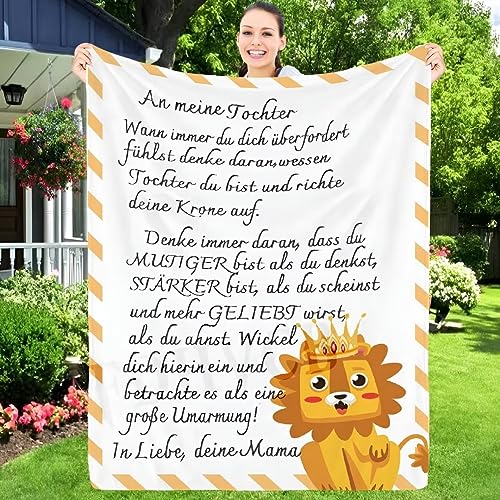 An meine Tochter
Wann immer du dich überfordert
fühlst denke daran,wessen
Tochter du bist und richte
deine Krone auf.
Denke immer daran, dass du
MUTIGER bist als du denkst,
STÄRKER bist, als du scheinst
und mehr GELIEBT wirst,
als du ahnst. Wickel
dich hierin ein und
betrachte es als eine
große Umarmung!
In Liebe, deine Mama